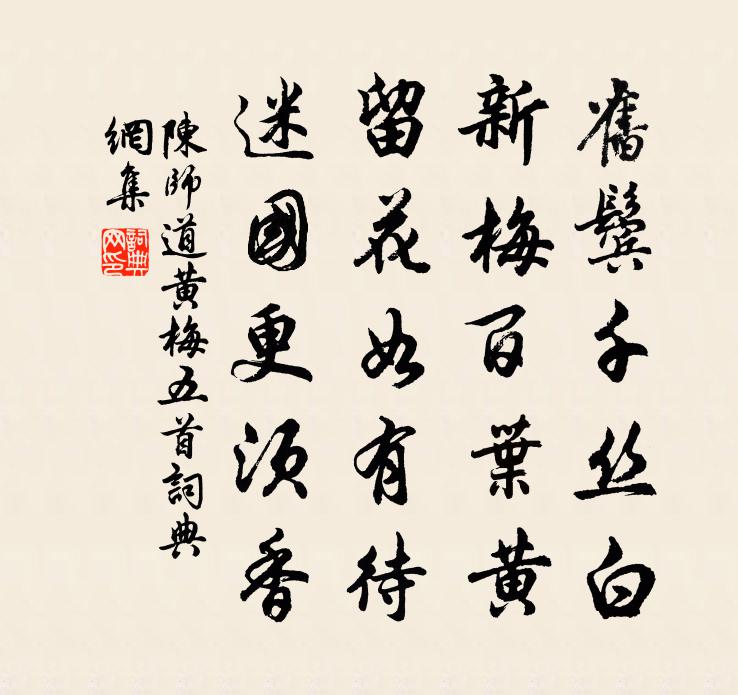 舊鬢千丝白
新梅百葉黄
留花如有待
迷國更須香
陳師道黄梅五首詞典
網集
詞典
网印